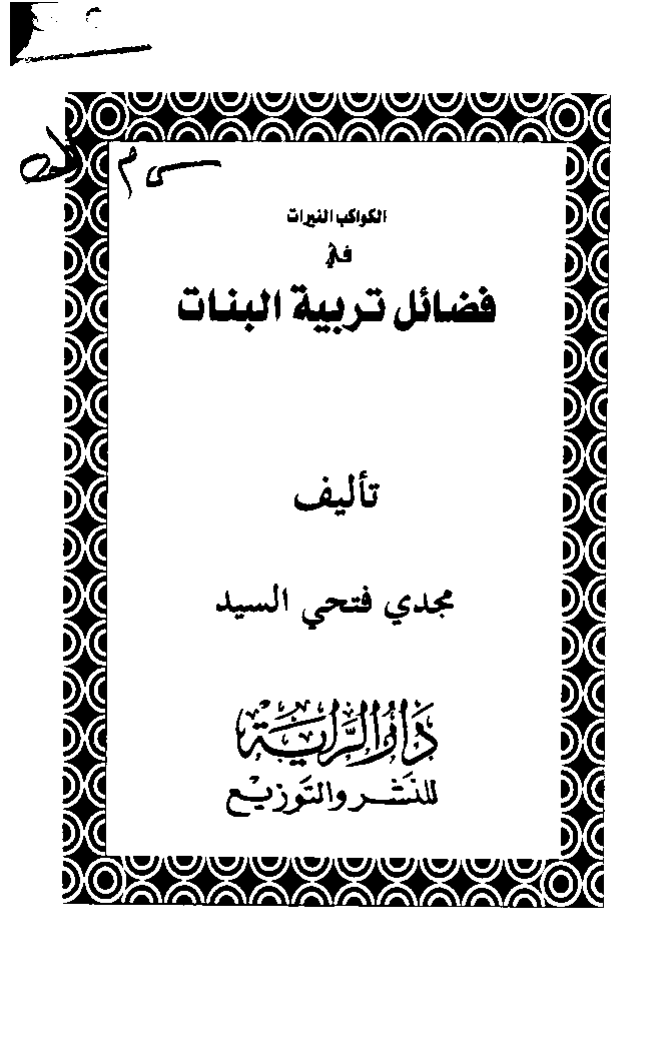 الكواكب النيرات
في
فضائل تربية البنات
تأليف
مجدي فتحي السيد
دار الراية
للنشر والتوزيع